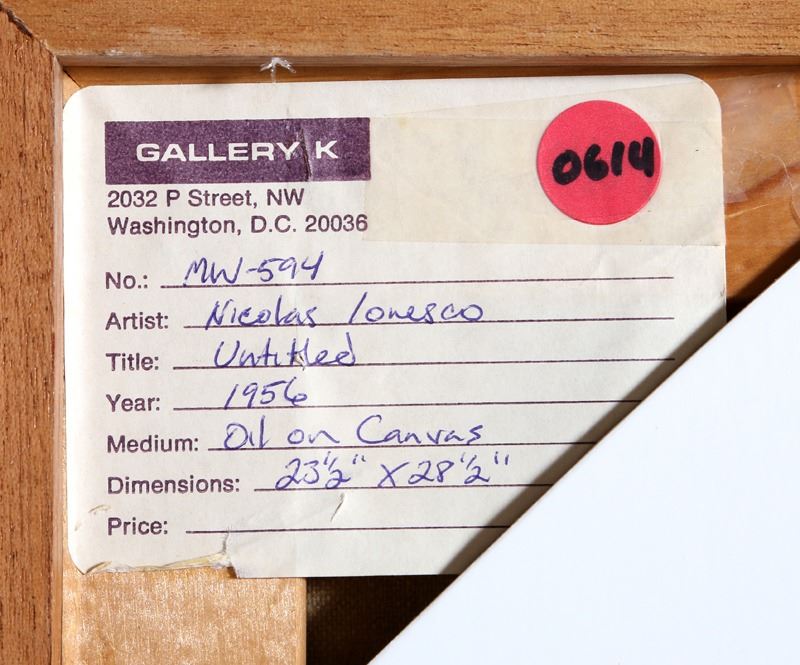 GALLERY K
0614
2032 P Street, NW
Washington, D.C. 20036
No.: MW-594
Artist: Nicolas Ionesco
Title: Untitled
Year: 1956
Medium: Oil on Canvas
Dimensions: 23 1/2" X 28 1/2"
Price: